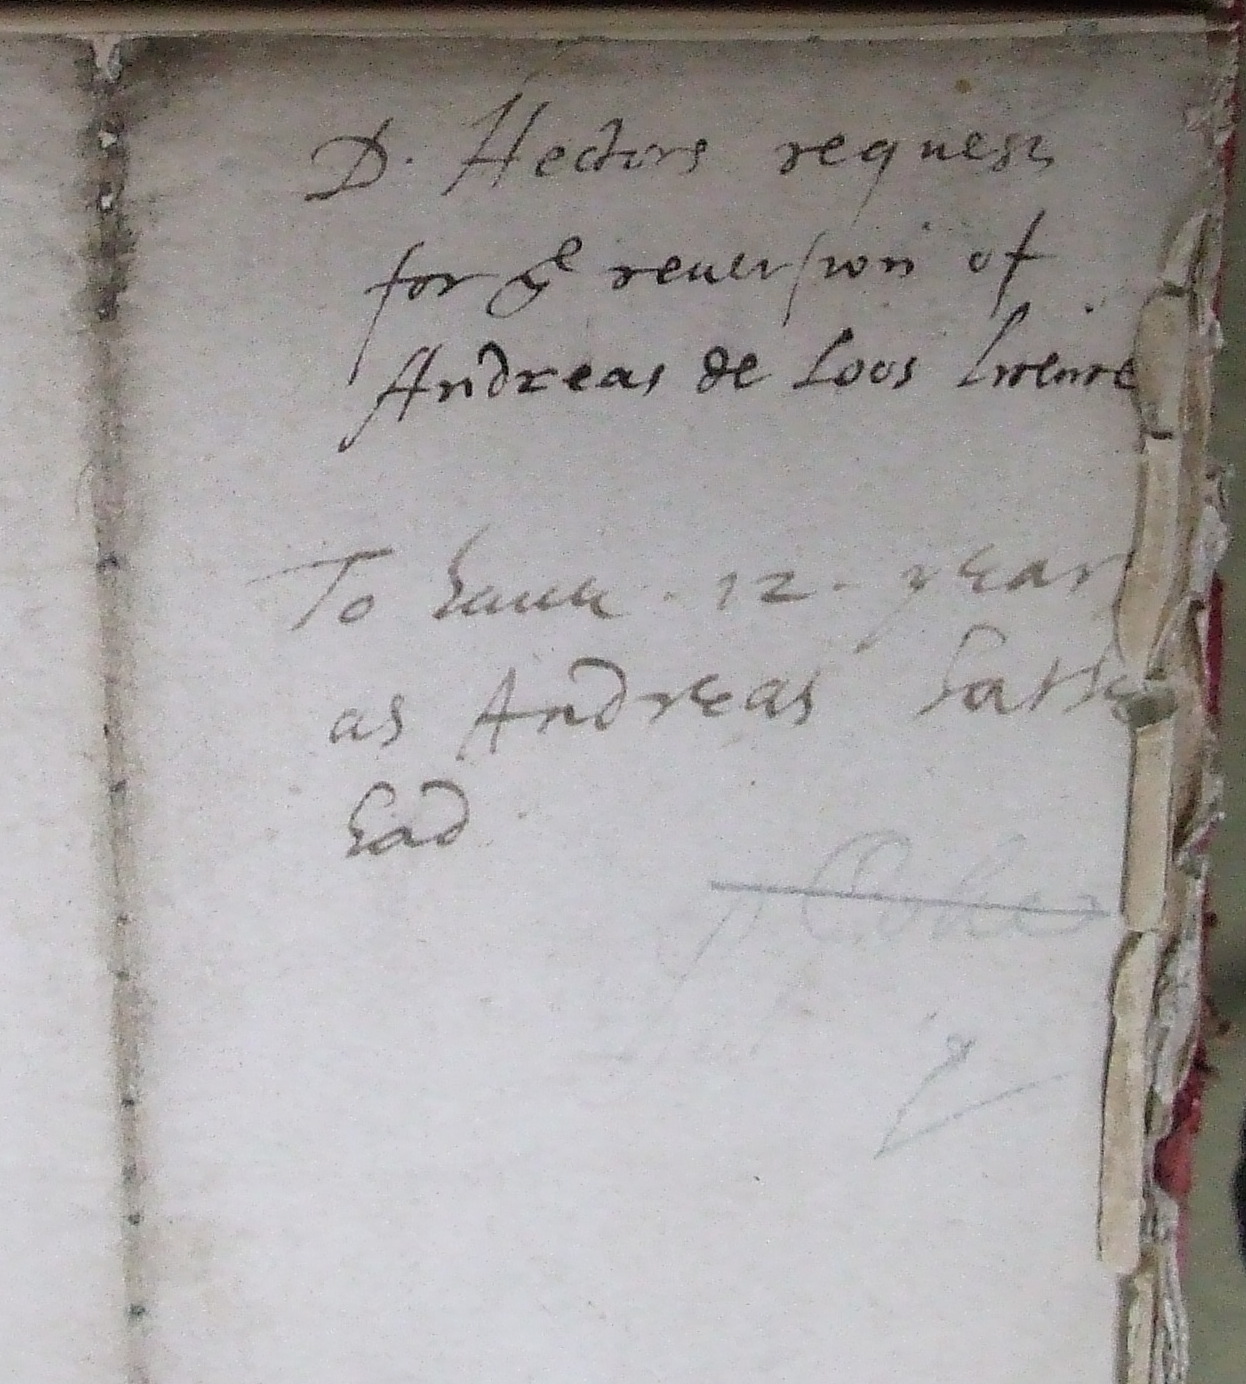 D. Hectors request
for yͤ reuersion of
Andreas de Loos licence
To haue . 12 . year
as Andreas hathe
had .